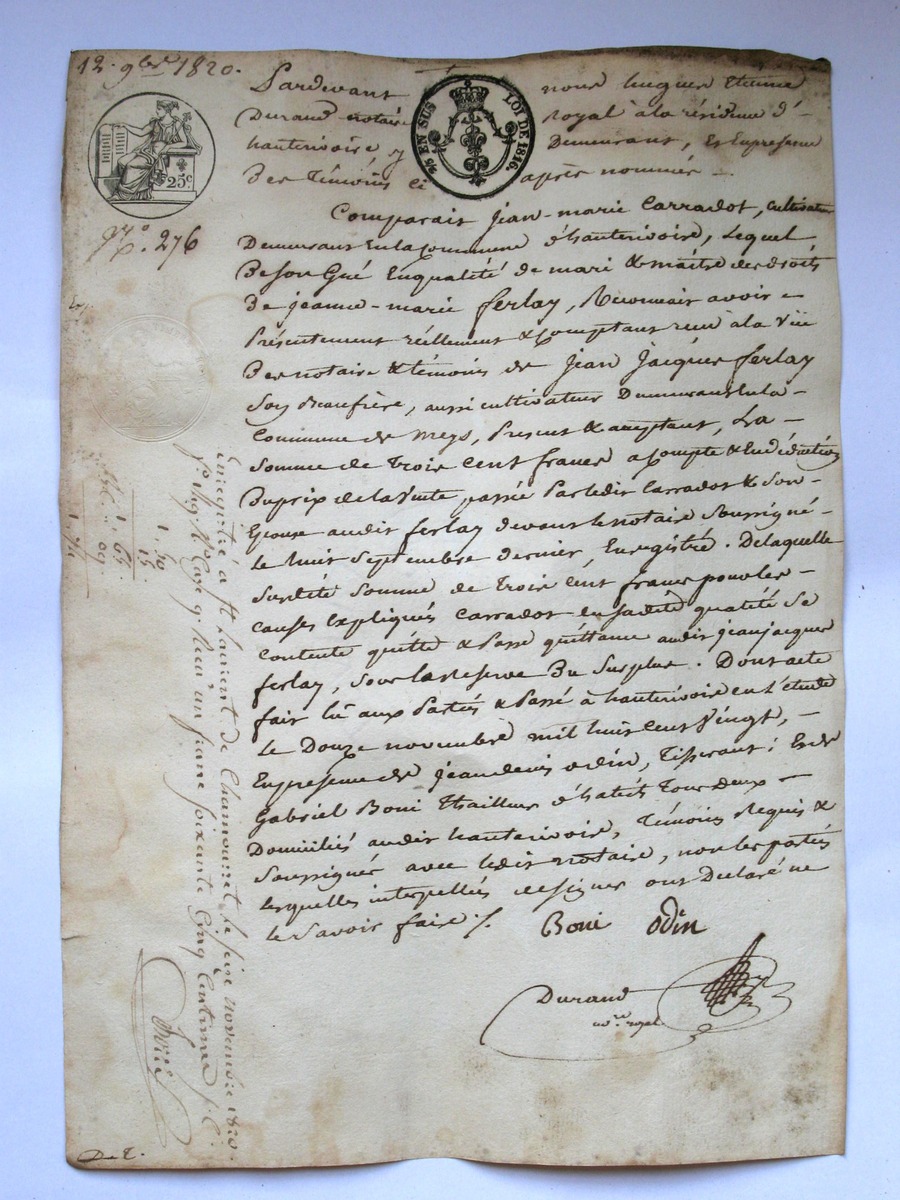 12. 9bre 1820.
25c
No. 276
¼ EN SUS LOI DE 1816.
Pardevant nous hugues Etienne
Durand notaire royal à la résidence d'
hauterivoire y Demeurant, & En presence
Des Témoins ci après nommés —
Comparait Jean-marie Carradot, cultivateur
Demeurant En la Commune d'hauterivoire, Lequel
De son Gré En qualité de mari & maître des droits
De jeanne-marie ferlay, Reconnait avoir =
Présentement réellement & comptant recu à la vüe
Des notaire & témoins de Jean Jacques ferlay
Son Beaufrère, aussi cultivateur Demeurant En la -
Commune de meys, Présent & acceptant, La -
Somme de Trois cent francs acompte & En déduction
Du prix de la Vente, passée Par ledit Carradot & Son -
Epouse audit ferlay devant le notaire Soussigné -
Le huit Septembre dernier, Enregistré. De laquelle
Susdite Somme de trois cent francs pour les -
causes Expliqués Carradot en sadite qualité Se
Contente quitte & Passe quittance audit jean jacques
ferlay, Sous la reserve Du Surplus. Dont acte
fait lû aux Parties & Passé à hauterivoire en l'étude
Le Douze novembre mil huit cent Vingt, -
En presence de jean denis odin, Tisserant; Et de
Gabriel Boni Thailleur d'habits Tous deux -
Domiciliés audit hauterivoire, Témoins Requis &
Soussignés avec ledit notaire, non les parties
lesquelles interpellées de signer ont Declaré ne
le Savoir faire ./.
Boni Odin
Durand
nore royal
Enregistré à St Laurent de Chamousset le seize novembre 1820.
Recu un franc soixante Cinq Centimes
1. 50
15
1. 65
09
1. 74
D & T.